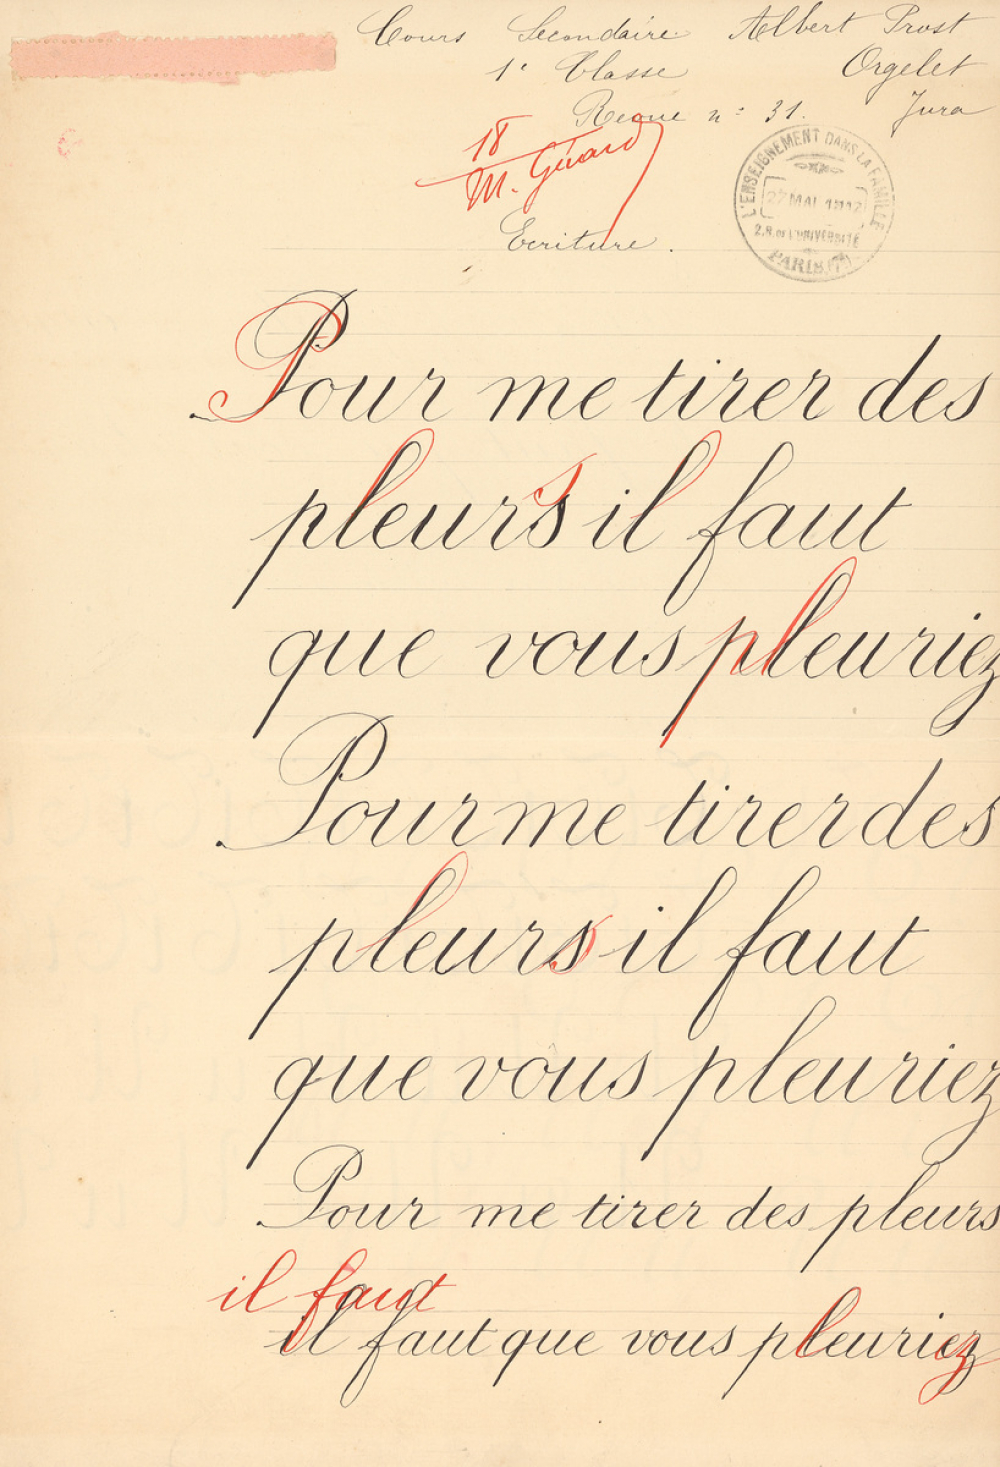 Cours Secondaire Albert Prost
1e Classe Orgelet
Revue n° 31. Jura
18
M. Guard
L'ENSEIGNEMENT DANS LA FAMILLE
27 MAI 1912
2.R. DE L'UNIVERSITÉ
PARIS (7e)
Ecriture.
Pour me tirer des
pleurs il faut
que vous pleuriez
Pour me tirer des
pleurs il faut
que vous pleuriez
Pour me tirer des pleurs
il faut
il faut que vous pleuriez